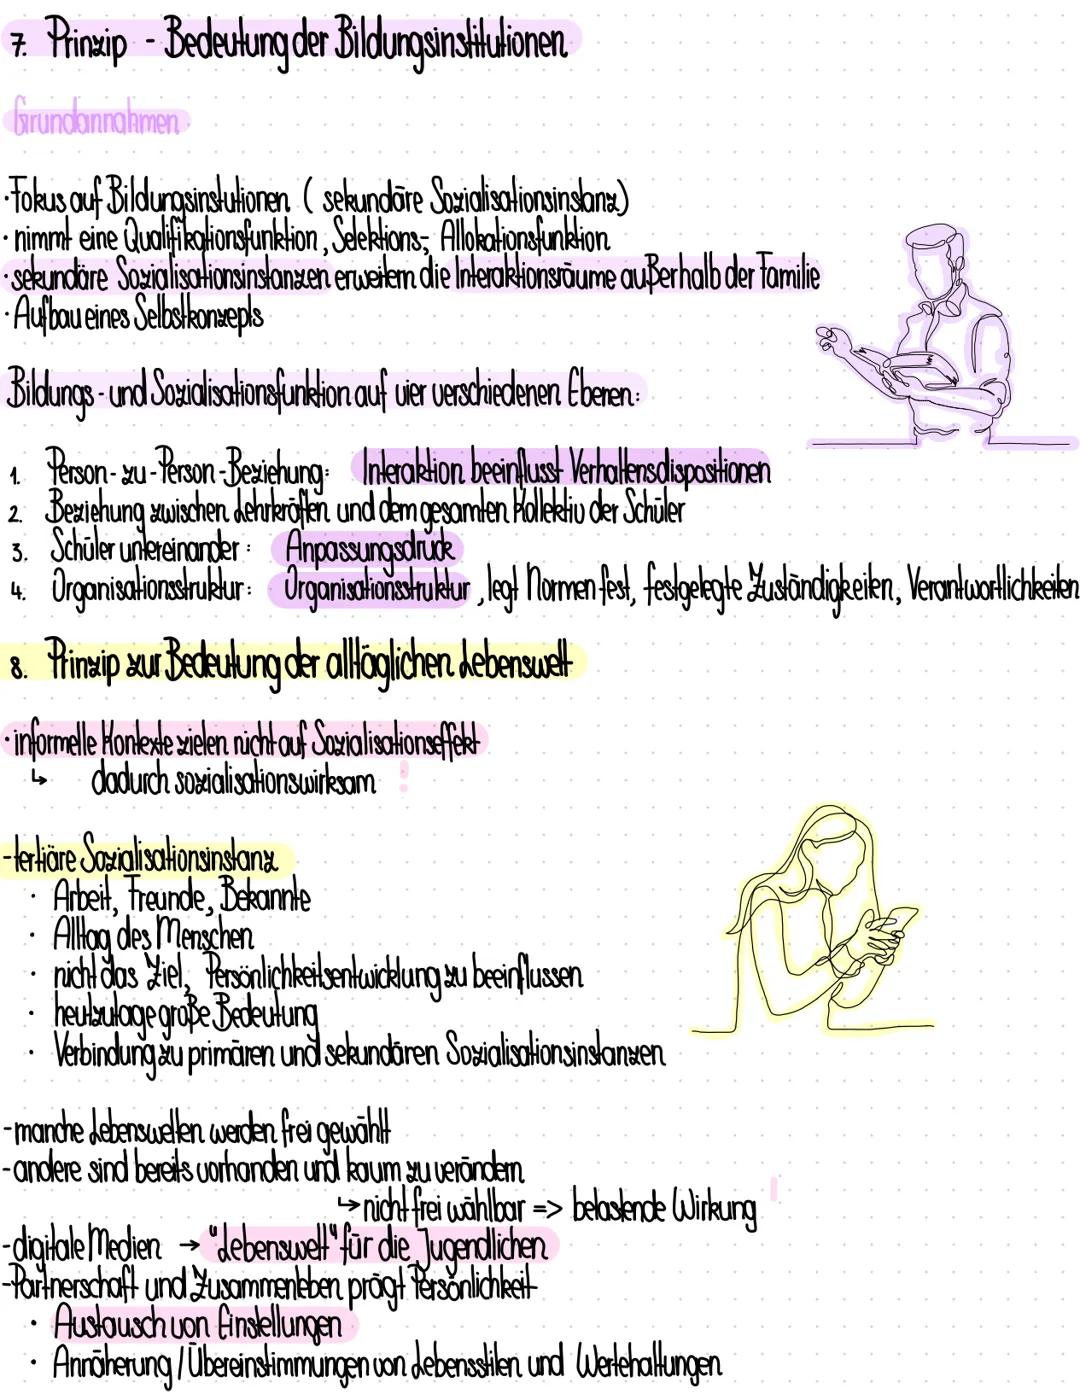 7. Prinzip - Bedeutung der Bildungsinstitutionen
Grundannahmen
·Fokus auf Bildungsinstutionen ( sekundäre Sozialisationsinstanz)
· nimmt eine Qualifikationsfunktion, Selektions-, Allokationsfunktion
·sekundäre Sozialisationsinstanzen erweitern die Interaktionsräume außerhalb der Familie
· Aufbau eines Selbstkonzepts
Bildungs- und Sozialisationsfunktion auf vier verschiedenen Ebenen:
1. Person-zu-Person-Beziehung: Interaktion beeinflusst Verhaltensdispositionen
2. Beziehung zwischen Lehrkräften und dem gesamten Kollektiv der Schüler
3. Schüler untereinander: Anpassungsdruck
4. Organisationsstruktur: Organisationsstruktur, legt Normen fest, festgelegte Zuständigkeiten, Verantwortlichkeiten
8. Prinzip zur Bedeutung der alltäglichen Lebenswelt
· informelle Kontexte zielen nicht auf Sozialisationseffekt
↳ dadurch sozialisationswirksam !
-tertiäre Sozialisationsinstanz
· Arbeit, Freunde, Bekannte
· Alltag des Menschen
· nicht das Ziel, Persönlichkeitsentwicklung zu beeinflussen
· heutzutage große Bedeutung
· Verbindung zu primären und sekundären Sozialisationsinstanzen
-manche Lebenswelten werden frei gewählt
-andere sind bereits vorhanden und kaum zu verändern
↳ nicht frei wählbar => belastende Wirkung !
-digitale Medien → "Lebenswelt" für die Jugendlichen
-Partnerschaft und Zusammenleben prägt Persönlichkeit
· Austausch von Einstellungen
· Annäherung / Übereinstimmungen von Lebensstilen und Wertehaltungen